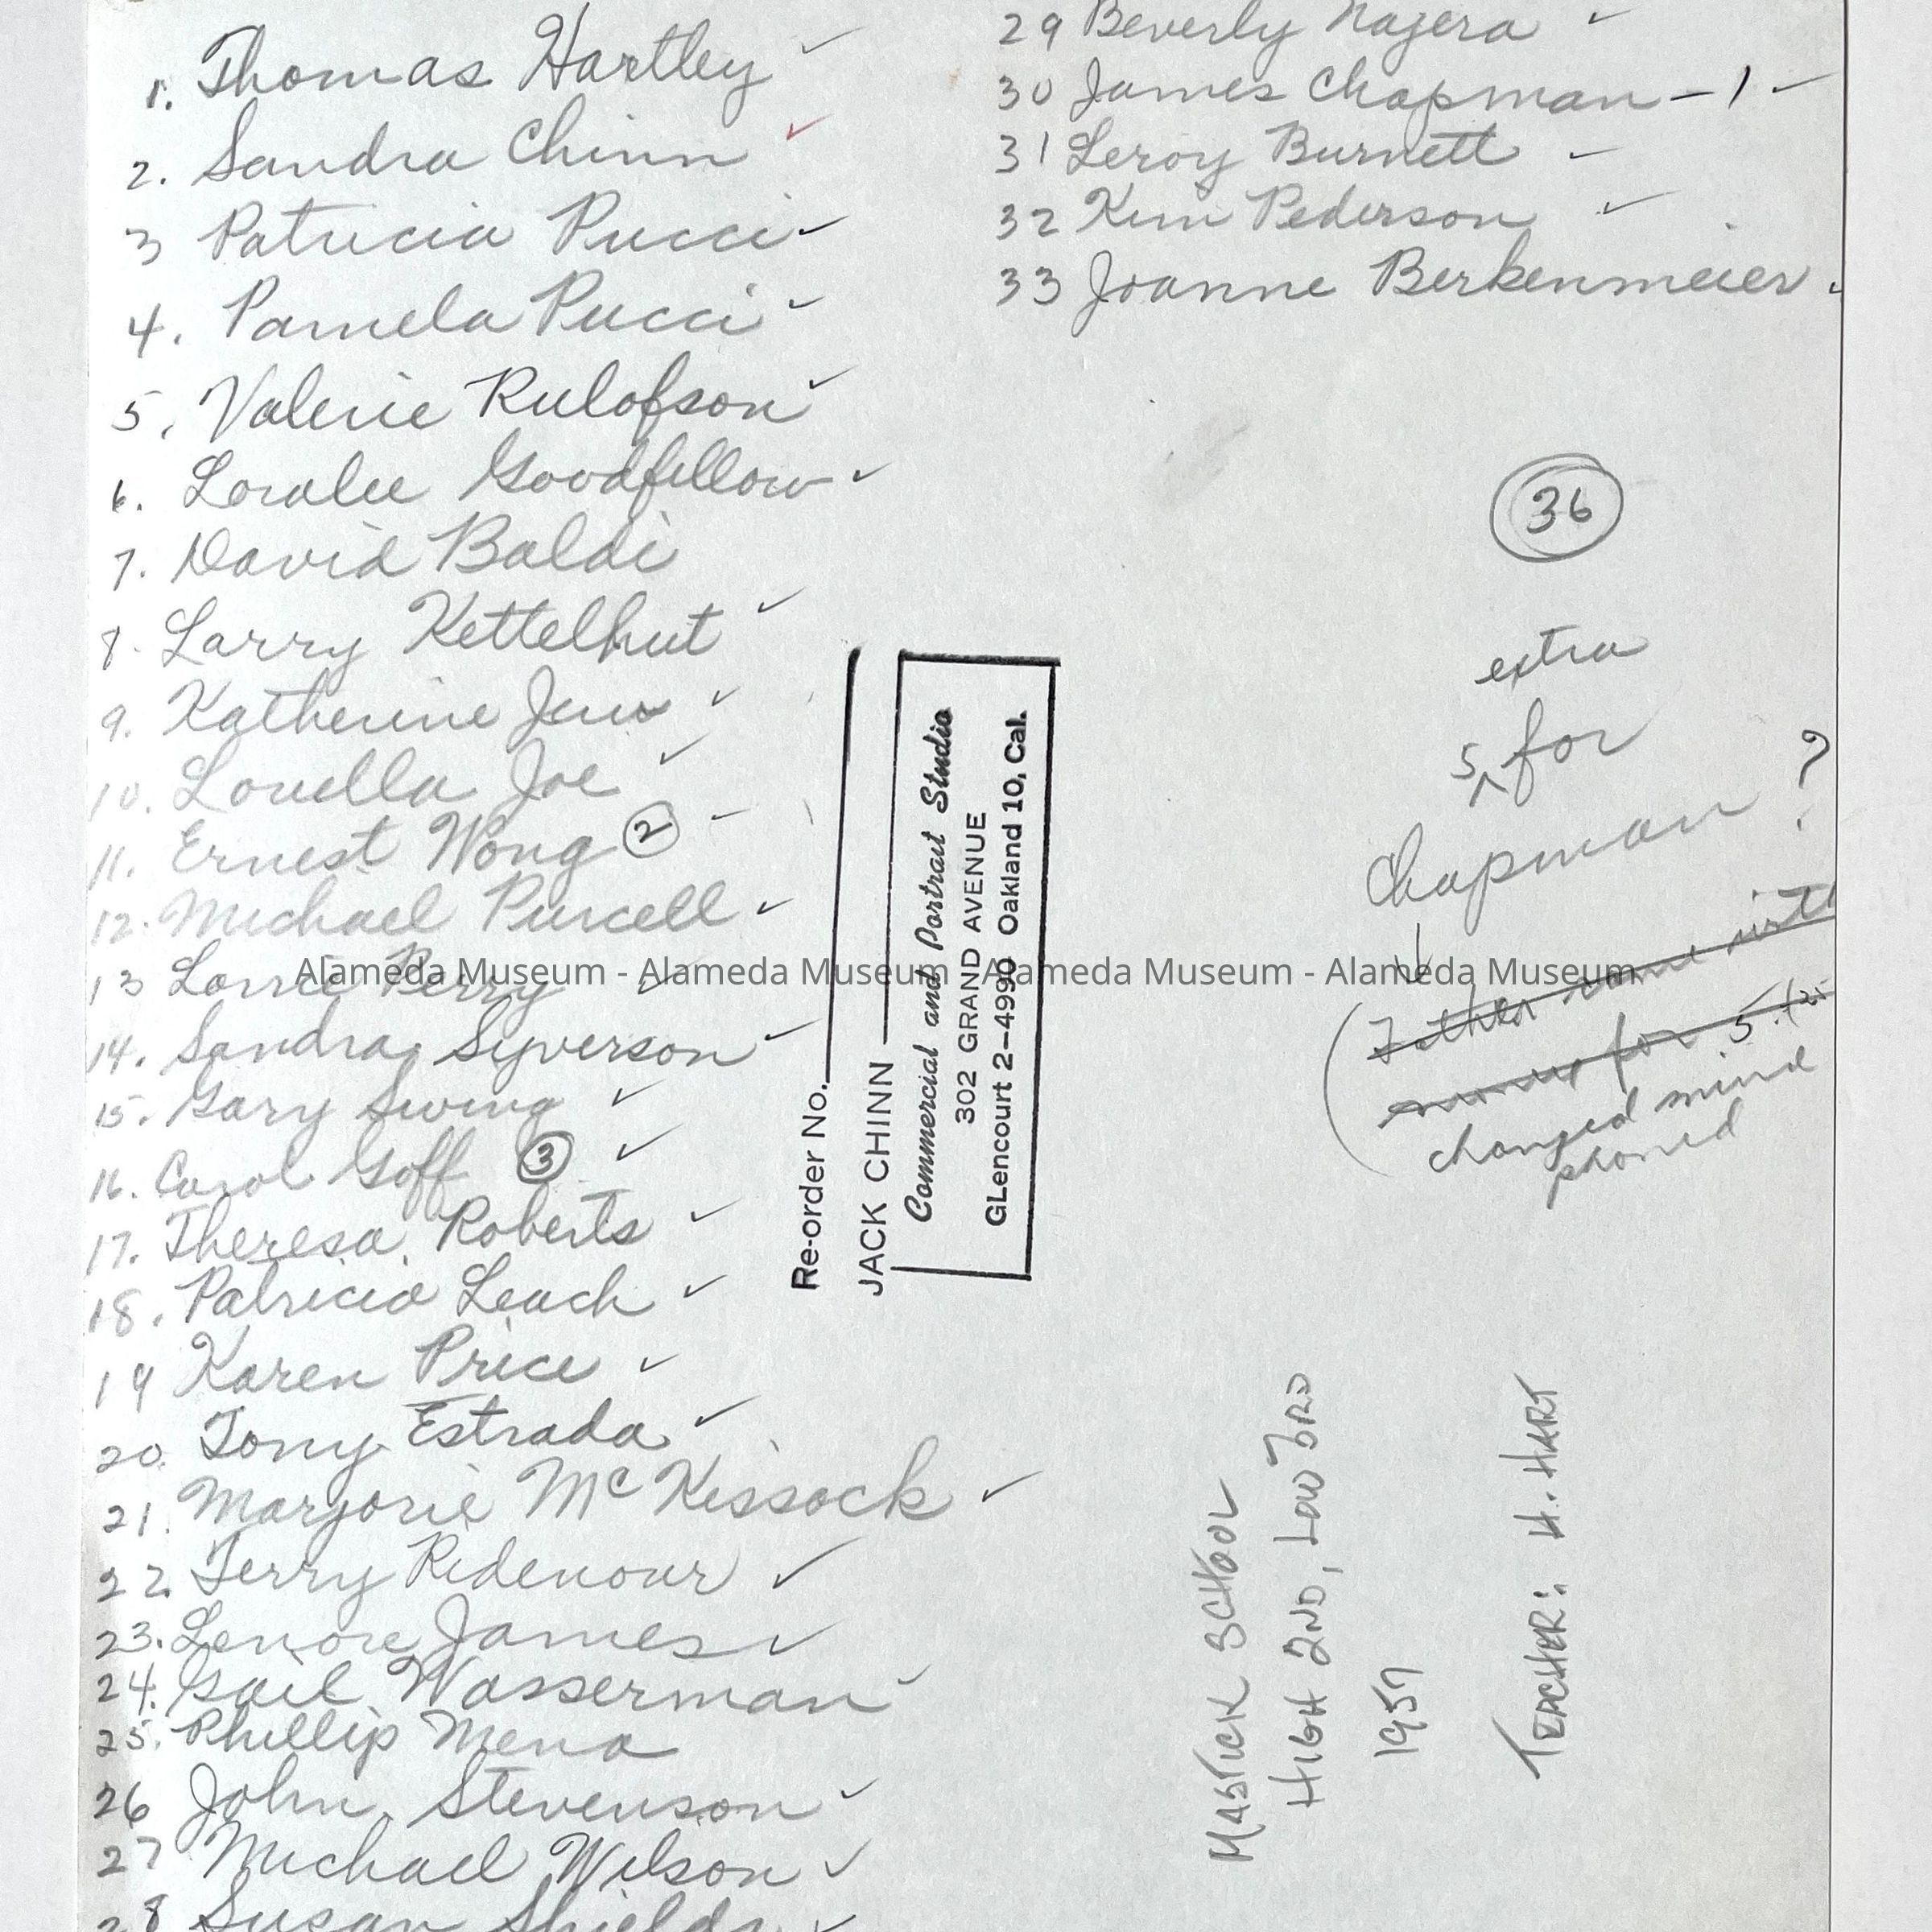 1. Thomas Hartley ✓
2. Sandra Chinn ✓
3 Patricia Pucci ✓
4. Pamela Pucci ✓
5. Valerie Rulofson ✓
6. Loralee Goodfellow ✓
7. David Baldi
8. Larry Kettelhut ✓
9. Katherine ✓
10. Louella Joe ✓
11. Ernest Wong ② -
12. Michael Purcell ✓
13 Lorrie Berry ✓
14. Sandra Syverson ✓
15. Gary Swing ✓
16. Carol Goff ③ ✓
17. Theresa Roberts ✓
18. Patricia Leach ✓
19 Karen Price ✓
20. Tony Estrada ✓
21. Marjorie McKissock ✓
22. Terry Ridenour ✓
23. Lenore James ✓
24. Gail Wasserman ✓
25. Phillip Mena
26 John Stevenson ✓
27 Michael Wilson ✓
28 Susan Shields ✓
29 Beverly Najera ✓
30 James Chapman - 1 ✓
31 Leroy Burnett ✓
32 Kim Pederson ✓
33 Joanne Berkenmeier
36
extra
5 ^ for
Chapman ?
for 5.
changed mind
phoned
Re-order No.
JACK CHINN
Commercial and Portrait Studio
302 GRAND AVENUE
GLencourt 2-4990 Oakland 10, Cal.
MASTICK SCHOOL
HIGH 2ND, LOW 3RD
1957
TEACHER: H. HART
Alameda Museum - Alameda Museum - Alameda Museum - Alameda Museum